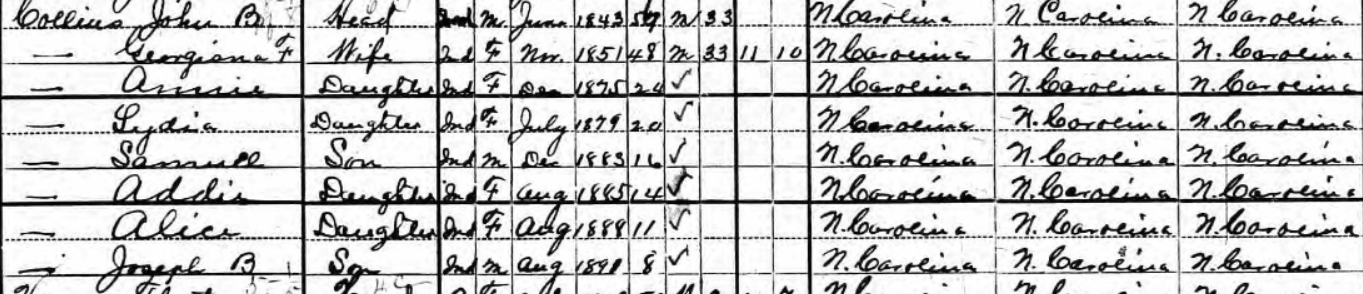 Collins John B Head Ind M June 1843 57 M 33 N Carolina N Carolina N Carolina
— Georgiana F Wife Ind F Nov. 1851 48 M 33 11 10 N Carolina N Carolina N. Carolina
— Annie Daughter Ind F Dec 1875 24 ✓ N Carolina N. Carolina N. Carolina
— Lydia Daughter Ind F July 1879 20 ✓ N Carolina N. Carolina N. Carolina
— Samuel Son Ind M Dec 1883 16 ✓ N. Carolina N. Carolina N. Carolina
— Addie Daughter Ind F Aug 1885 14 ✓ N Carolina N. Carolina N. Carolina
— Alice Daughter Ind F Aug 1888 11 ✓ N. Carolina N. Carolina N. Carolina
— Joseph B Son Ind M Aug 1891 8 ✓ N. Carolina N. Carolina N. Carolina